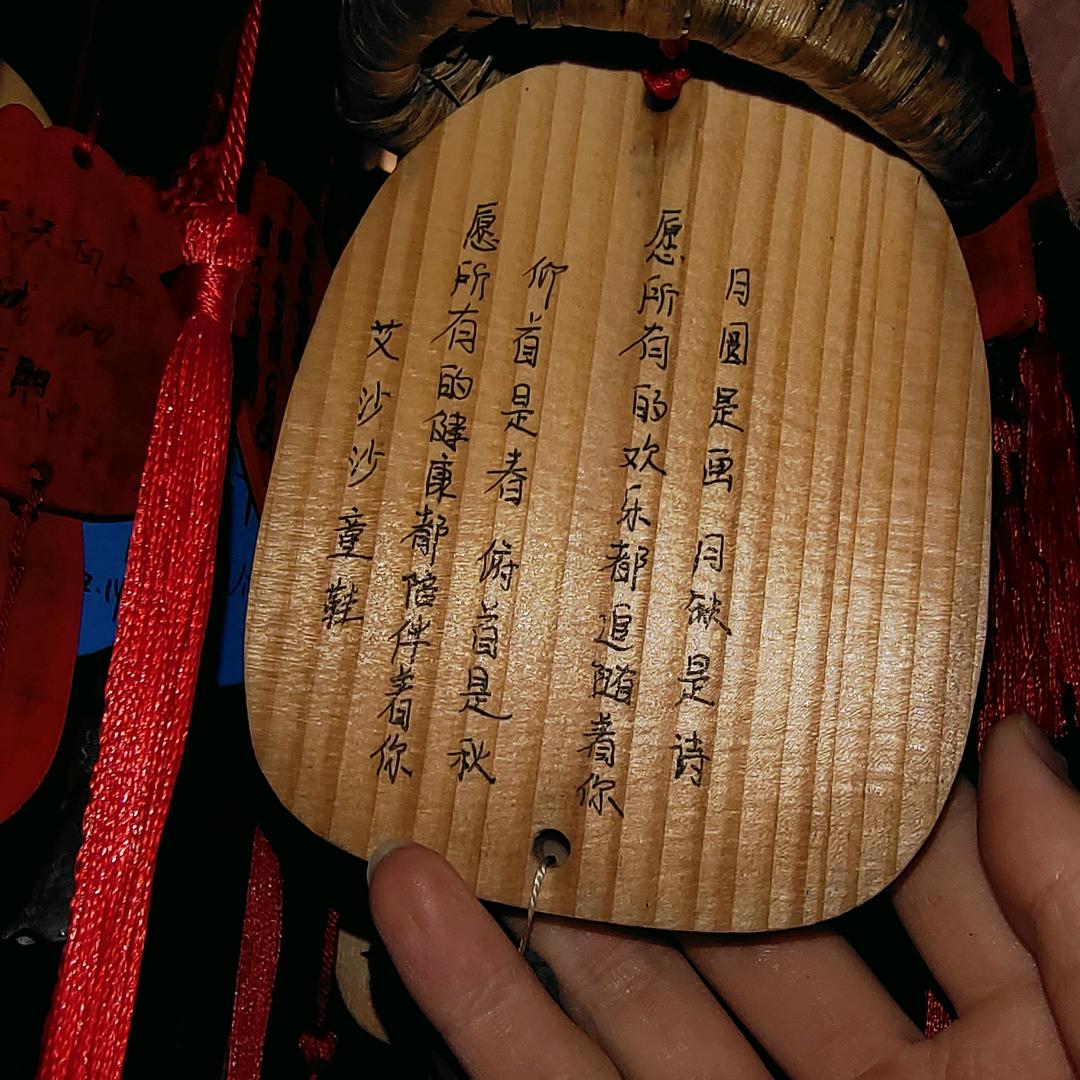 月圆是画 月缺是诗
愿所有的欢乐都追随着你
仰首是春 俯首是秋
愿所有的健康都陪伴着你
艾沙沙童鞋
天天向上